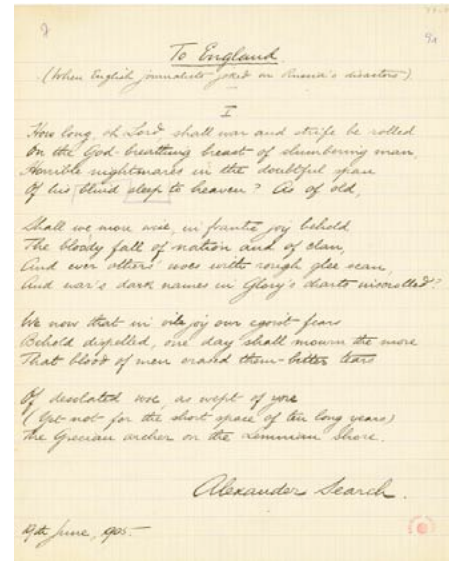 To England
(When English journalists joked on Russia's disasters)
I
How long, oh Lord, shall war and strife be rolled
On the God-breathing breast of slumbering man,
Horrible nightmares in the doubtful span
Of his blind sleep to heaven? As of old,
Shall we more wise, in frantic joy behold
The bloody fall of nation and of clan,
And ever others' woes with rough glee scan,
And war's dark names in Glory's charts inscrolled?
We now that in vile joy our egoist fears
Behold dispelled, one day shall mourn the more
That blood of men erased them - bitter tears
Of desolated woe, as wept of yore
(Yet not for the short space of ten long years)
The Grecian archer on the Lemnian shore.
Alexander Search.
19th June, 1905.